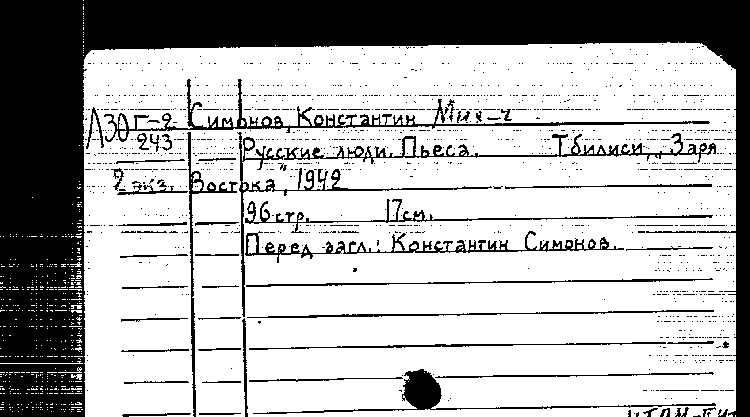 Л30 Г-2 Симонов, Константин Мих-ч
243 Русские люди. Пьеса. Тбилиси, „Заря
2 экз. Востока", 1942
96 стр. 17 см.
Перед загл.: Константин Симонов.